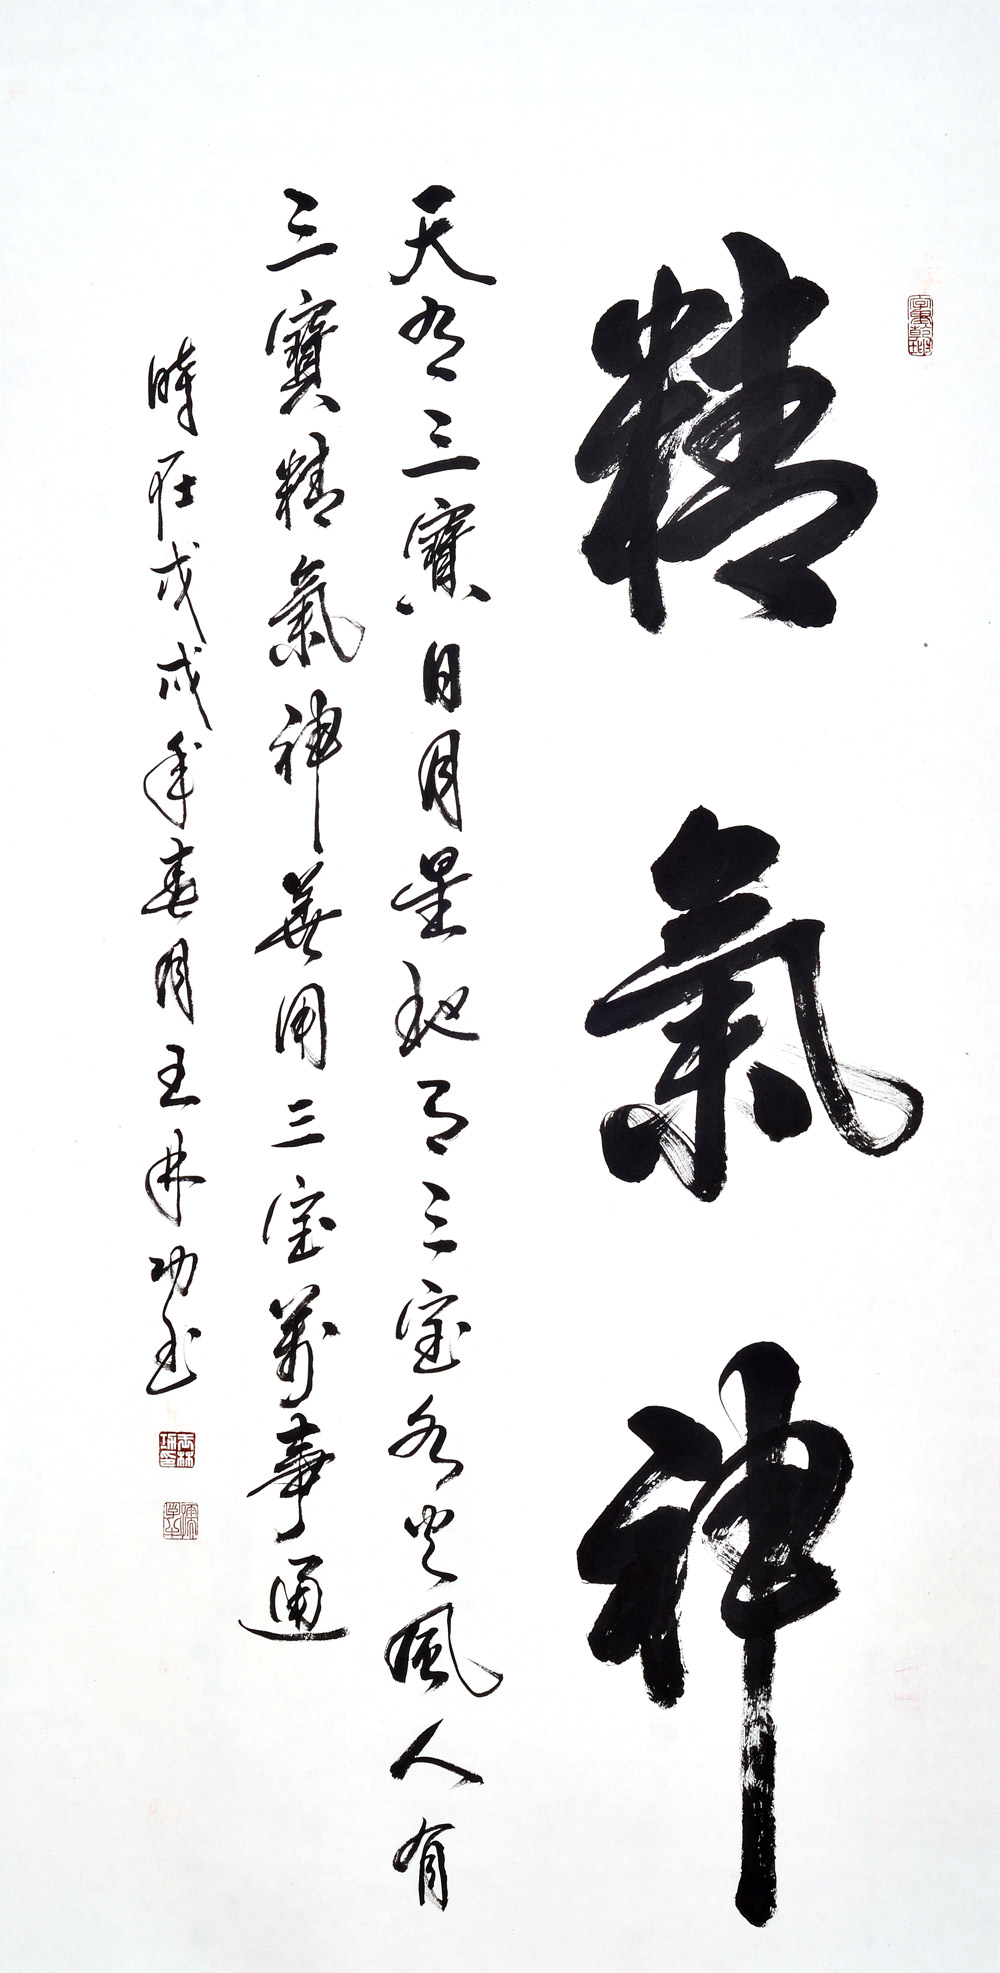 精氣神
天有三寶日月星地有三宝水火風人有
三寶精氣神善用三宝萬事通
時在戊戌年春月王林功书